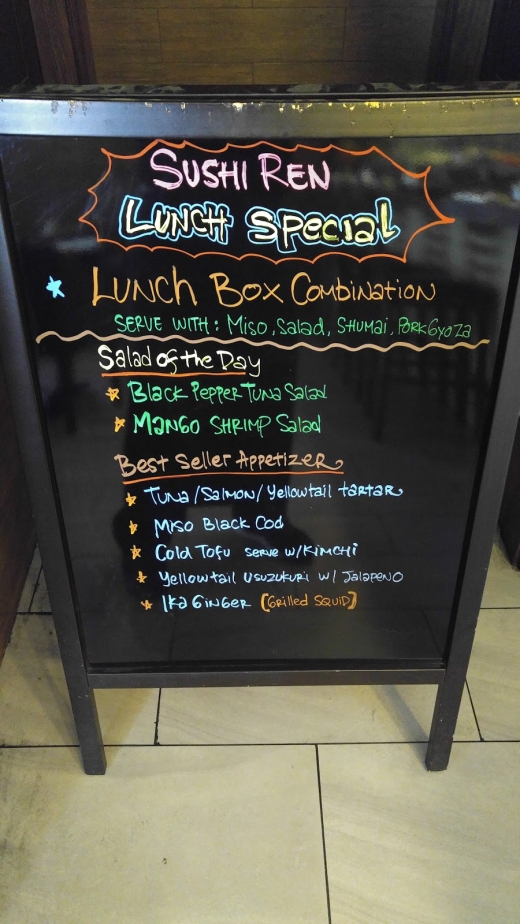 SUSHI REN
LUNCH SPECIAL
LUNCH BOX COMBINATION
SERVE WITH: Miso, Salad, SHUMAI, PORK GYOZA
Salad of the Day
Black Pepper Tuna Salad
MANGO SHRIMP Salad
Best Seller Appetizer
TUNA/SALMON/Yellowtail tartar
MISO Black Cod
Cold Tofu SERVE W/KIMCHI
Yellowtail USUZUKURI W/ JALAPENO
IKa GINGER [Grilled SQUID]